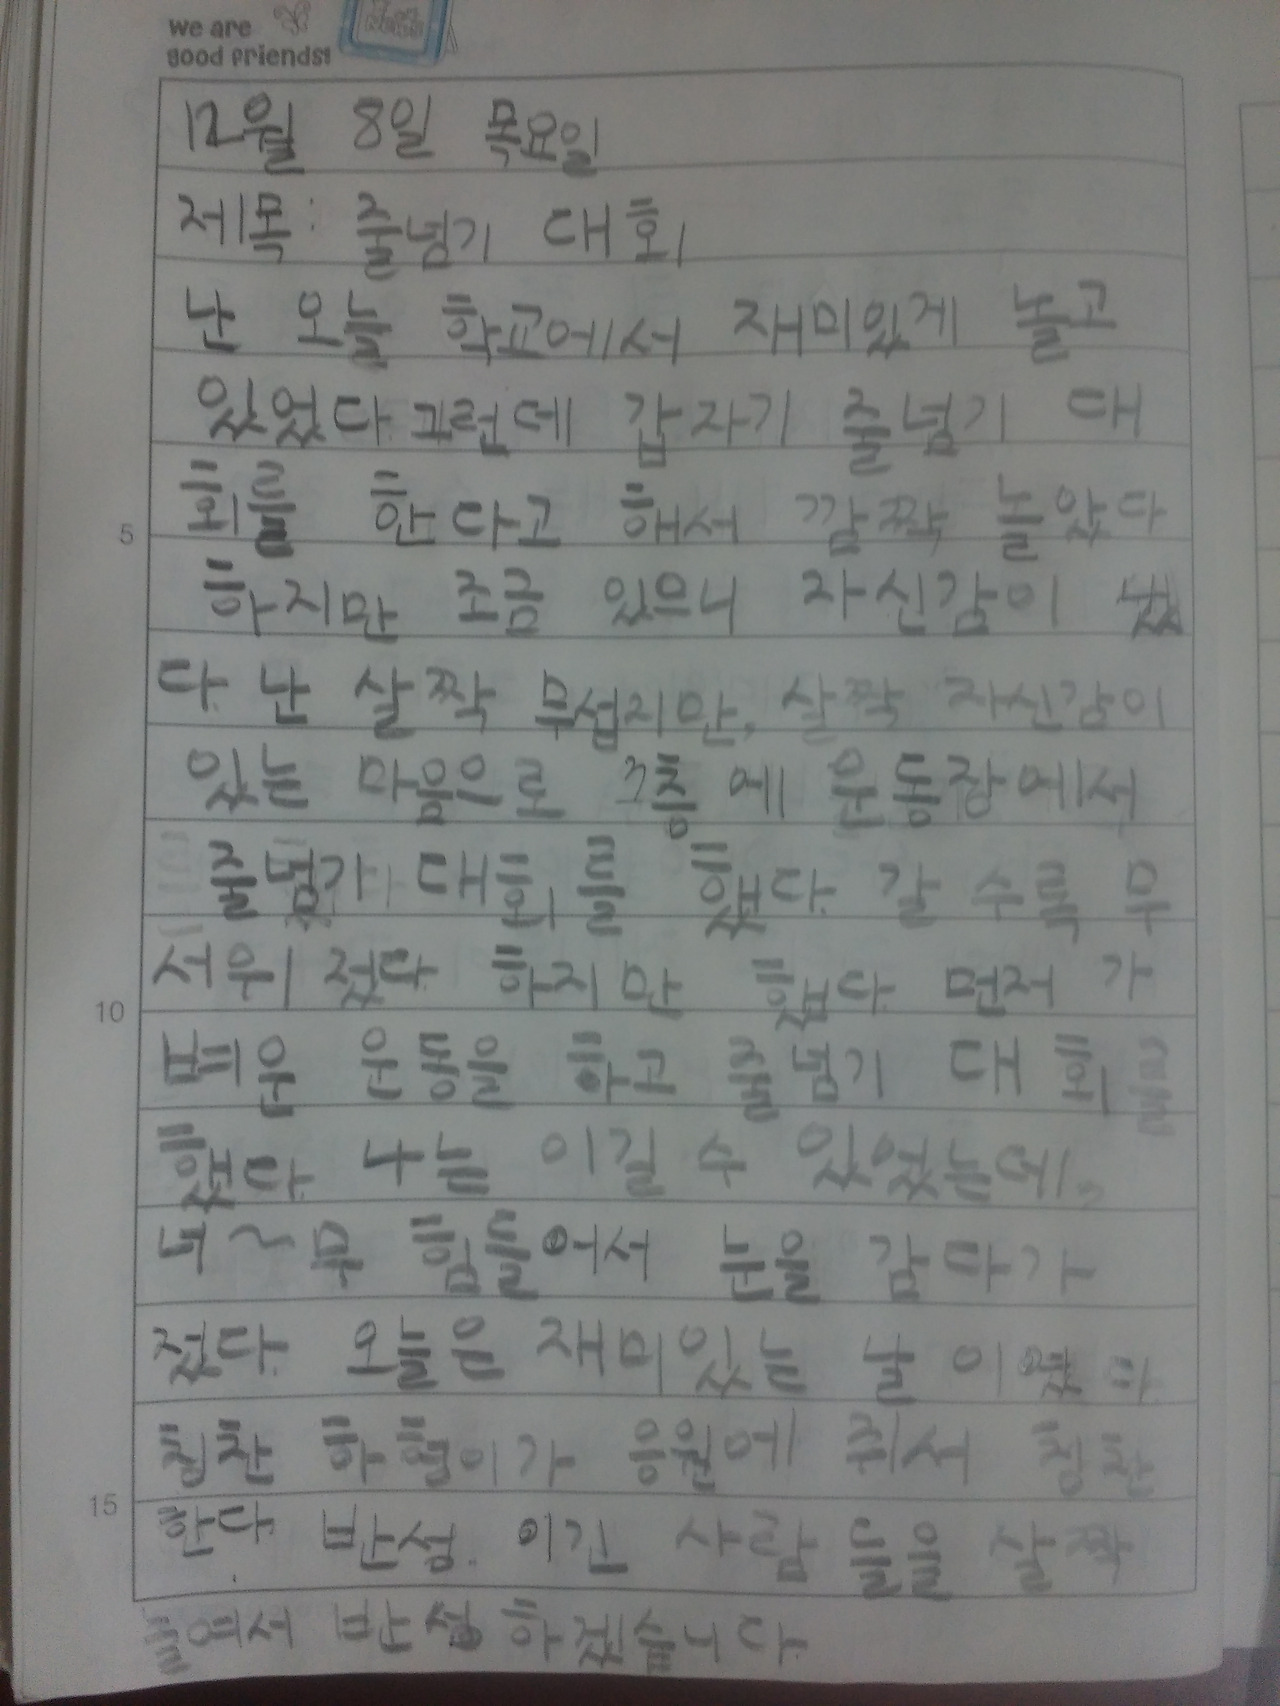 we are
good friends!
12월 8일 목요일
제목: 줄넘기 대회
난 오늘 학교에서 재미있게 놀고
있었다. 그런데 갑자기 줄넘기 대
회를 한다고 해서 깜짝 놀았다
5
하지만 조금 있으니 자신감이 났
다 난 살짝 무섭지만, 살짝 자신감이
있는 마음으로 3층에 운동장에서
줄넘기 대회를 했다. 갈 수록 무
서워졌다. 하지만 했다. 먼저 가
10
벼운 운동을 하고 줄넘기 대회를
했다. 나는 이길 수 있었는데,
너~무 힘들어서 눈을 감다가
졌다. 오늘은 재미있는 날이었다
칭찬 이가 응원에 줘서 칭찬
15
한다. 반성. 이긴 사람 살짝
반성 하겠습니다.